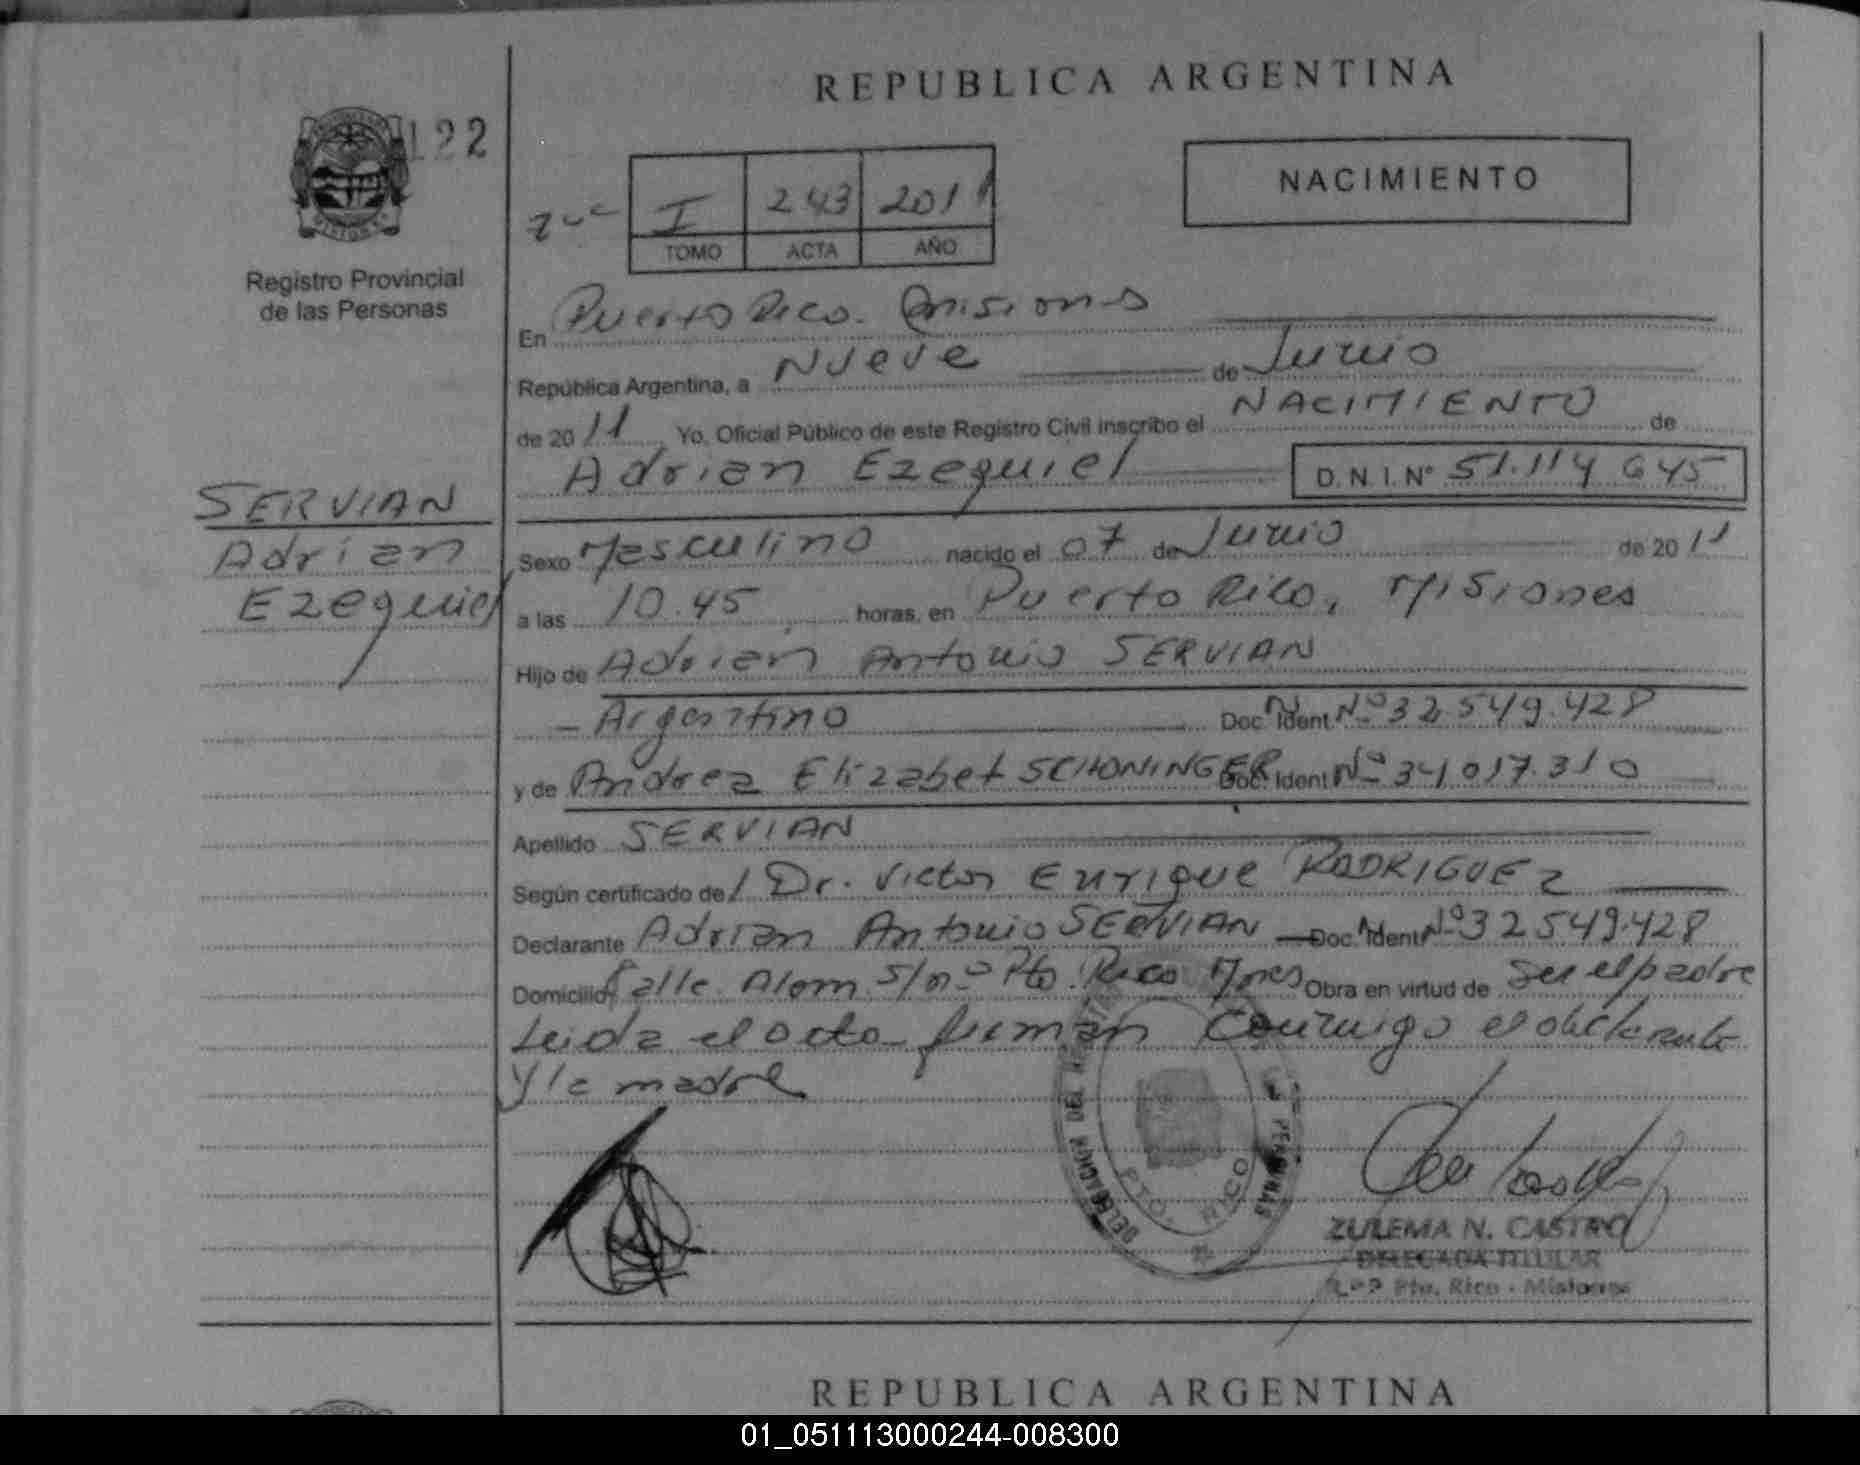 REPUBLICA ARGENTINA
122
NACIMIENTO
I 243 2011
TOMO ACTA AÑO
Registro Provincial
de las Personas
En Puerto Rico. Misiones
República Argentina, a Nueve de Junio
de 2011 Yo, Oficial Público de este Registro Civil inscribo el NACIMIENTO de
Adrian Ezequiel D.N.I. Nº 51.114 645
SERVIAN
Adrian
Ezequiel
Sexo Masculino nacido el 07 de Junio de 2011
a las 10.45 horas, en Puerto Rico, Misiones
Hijo de Adrian Antonio SERVIAN
Argentino Doc. Ident. Nº 32.549.428
y de Andrea Elizabet SCHONINGER Doc. Ident. Nº 34.017.310
Apellido SERVIAN
Según certificado de Dr. Victor Enrique RODRIGUEZ
Declarante Adrian Antonio SERVIAN Doc. Ident. Nº 32.549.428
Domicilio Calle Alem S/nº Pto. Rico Mnes Obra en virtud de Ser el padre
Leida el acta firman conmigo el declarante
y la madre
DELEGACION DEL REGISTRO DE LAS PERSONAS
PTO. RICO
ZULEMA N. CASTRO
DELEGADA TITULAR
Pto. Rico - Misiones
REPUBLICA ARGENTINA
01_051113000244-008300